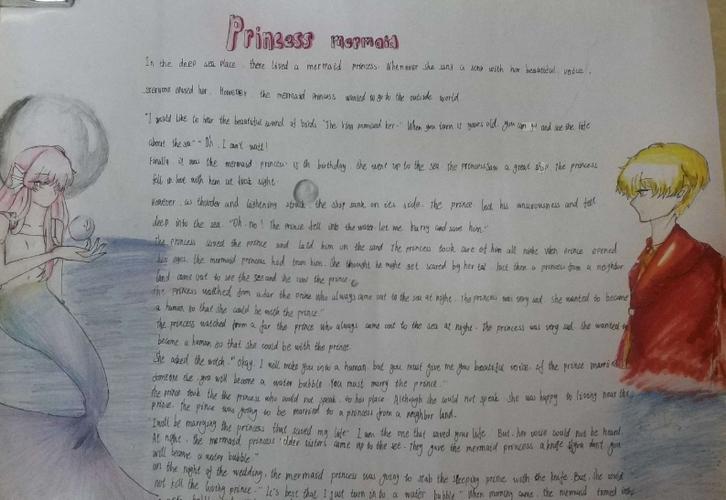 Princess mermaid
In the deep sea place, there lived a mermaid princess. Whenever she sang a song with her beautiful voice,
everyone praised her. However, the mermaid princess wanted to go to the outside world
"I would like to hear the beautiful sound of birds" The king promised her." When you turn 15 years old, you can go and see the
about the sea" "Oh, I can't wait!
Finally, it was the mermaid princess' 15 th birthday. she went up to the sea. The princess saw a great ship. The princess
fell in love with him at first sight
However, as thunder and lightening struck the ship sank on its side. The prince lost his and fell
deep into the sea. "Oh, no! The prince fell into the water. let me hurry and save him."
The princess saved the prince and laid him on the sand The princess took care of him all night when prince opened
his eyes, the mermaid princess had She thought he might get scared by her tail. Just then a princess from a neighbor
land came out to see the sea and she saw the prince
the princess watched from the prince who always came out to the sea at night. The princess was very sad. She wanted to become
a human so that she could be with the prince."
The princess watched form a far the prince who always came out to the sea at night. The princess was very sad. She wanted to
become a human so that she could be with the prince
She asked the witch. "Okay, I will make you into a human, but you must give me your beautiful voice. if the prince married
someone else you will become a water bubble you must marry the prince."
The prince took the the princess who could not speak, to his place. Although she could not speak, she was happy to living near the
prince. The prince was going to be married to a princess from a neighbor land.
"I will be marrying the princess that saved my life" I am the one that saved your life. But, her voice could not be heard.
At night, the mermaid princess' older sisters came up to the sea. They gave the mermaid princess a knife you must you
will become a water bubble"
on the night of the wedding, the mermaid princess was going to stab the sleeping prince with the knife. But, she could
not kill the loving prince. "It's best that I just turn in to a water bubble" When morning came, the mermaid turned into